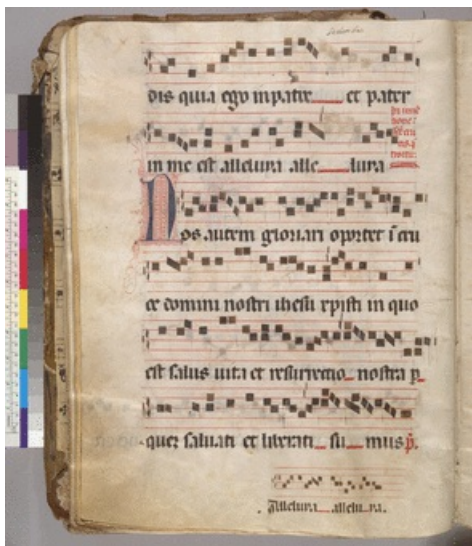 dis quia ego in patre et pater
in me est alleluia alle luia
os autem gloriari oportet i cru
ce domini nostri ihesu xpisti in quo
est salus uita et resurrectio nostra p
quez saluati et liberati su mus p.
Alleluia alleluia.